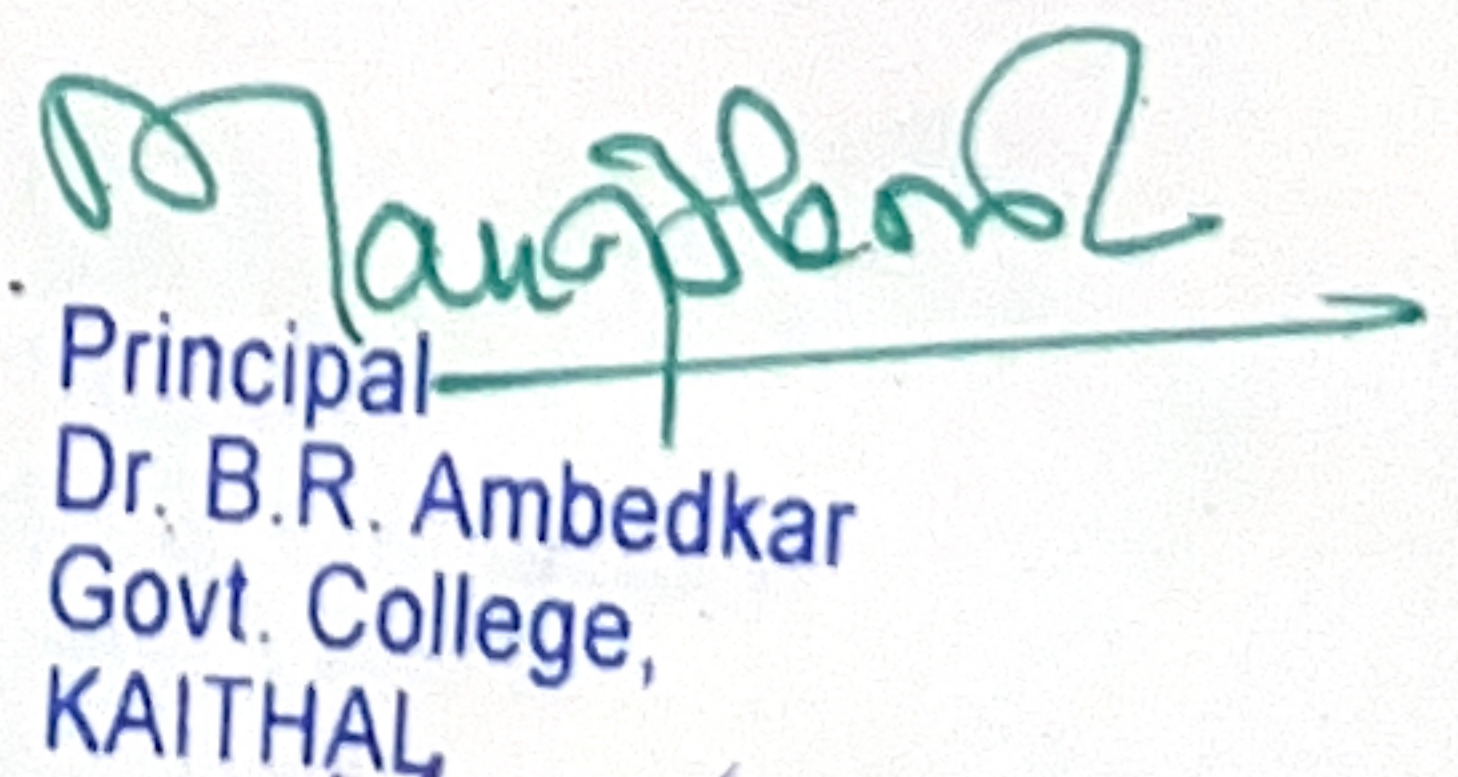 Principal
Dr. B.R. Ambedkar
Govt. College,
KAITHAL